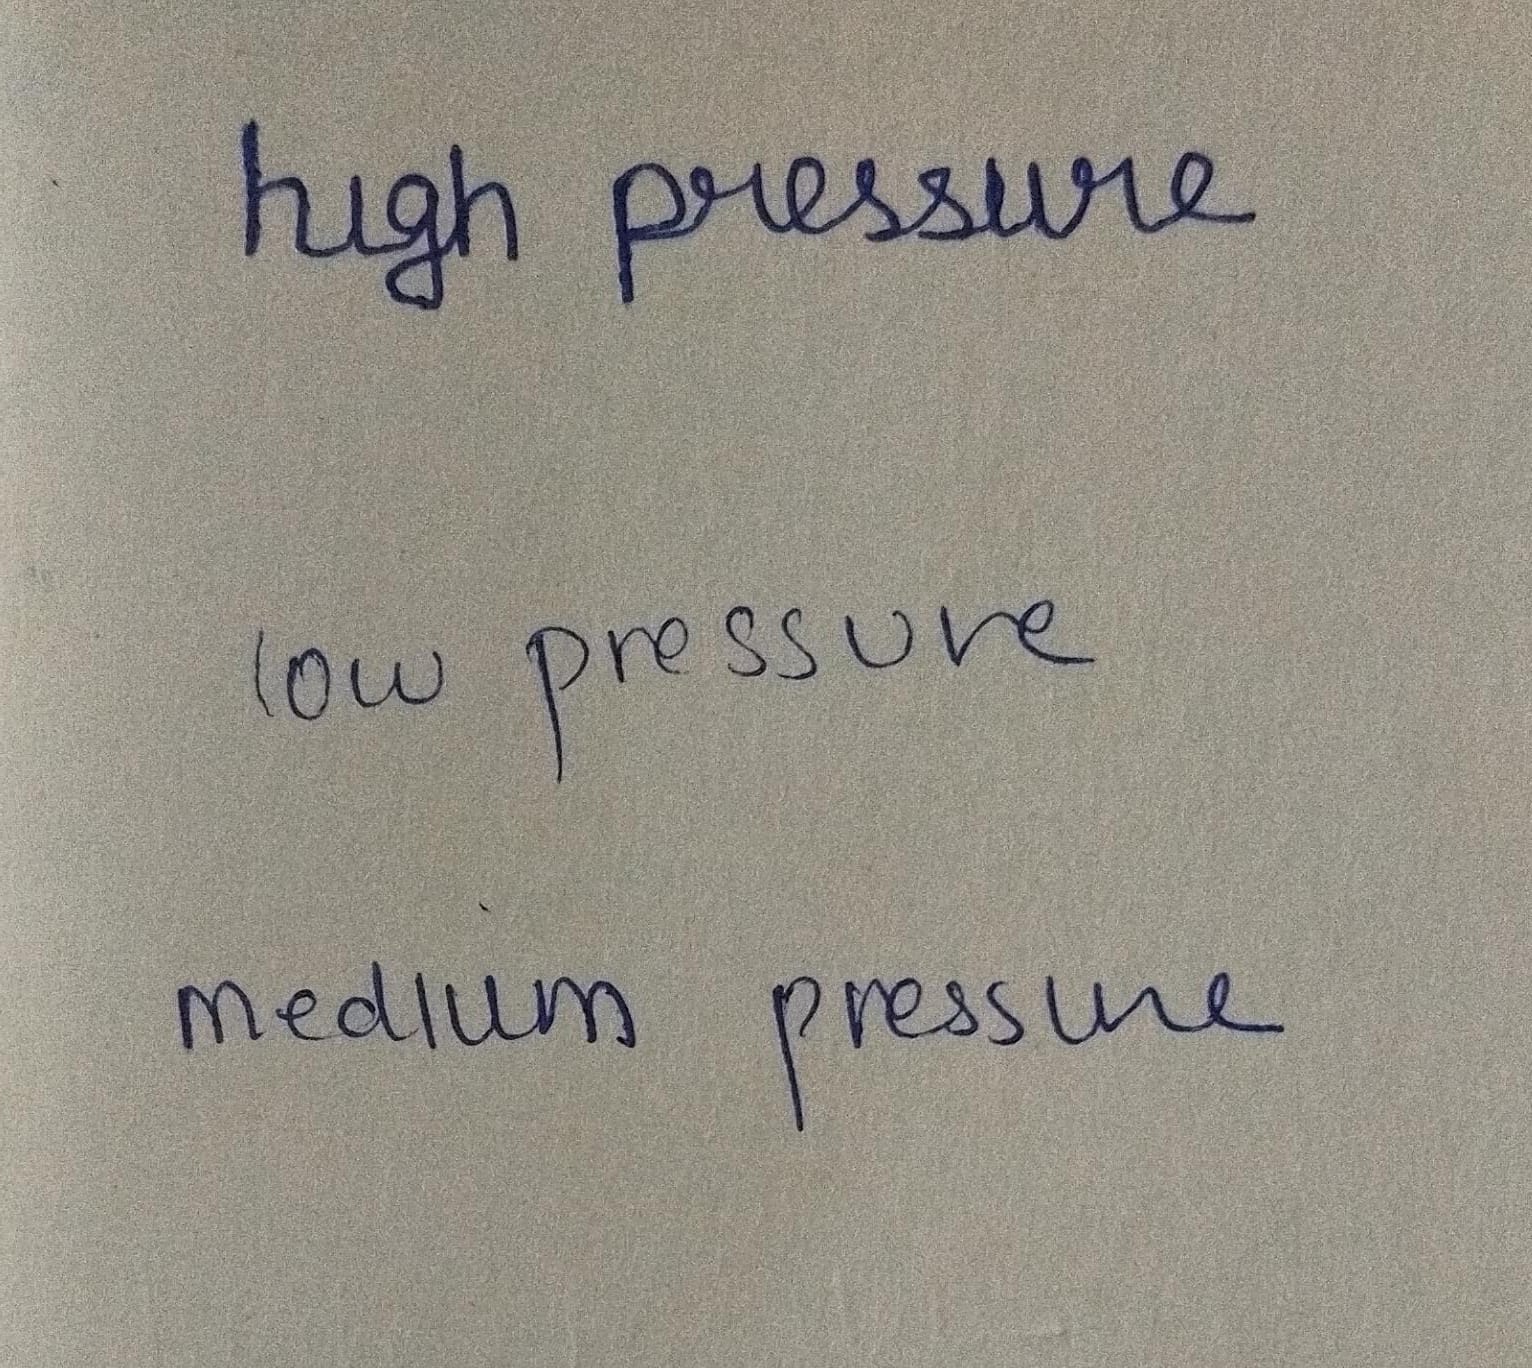 high pressure
low pressure
medium pressure